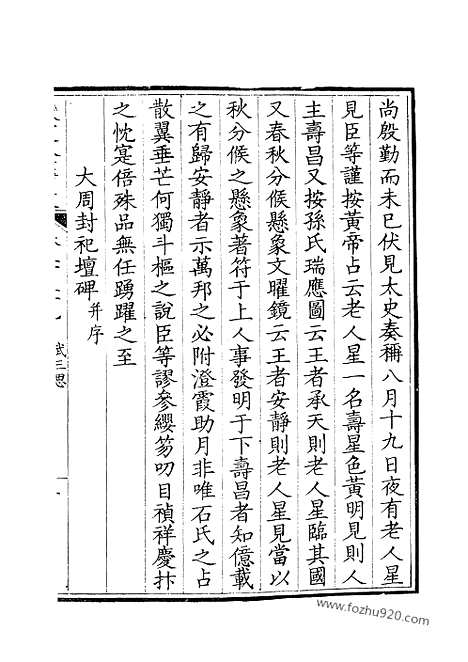 尚殷勤而未已伏見太史奏稱八月十九日夜有老人星
見臣等謹按黃帝占云老人星一名壽星色黃明見則人
主壽昌又按孫氏瑞應圖云王者承天則老人星臨其國
又春秋分候懸象文曜鏡云王者安靜則老人星見當以
秋分候之懸象著符于上人事發明于下壽昌者知億載
之有歸安靜者示萬邦之必附澄霞助月非唯石氏之占
散翼垂芒何獨斗樞之說臣等謬參纓笏叨目禎祥慶抃
之忱寔倍殊品無任踴躍之至
大周封祀壇碑并序
武三思
www.fozhu920.com